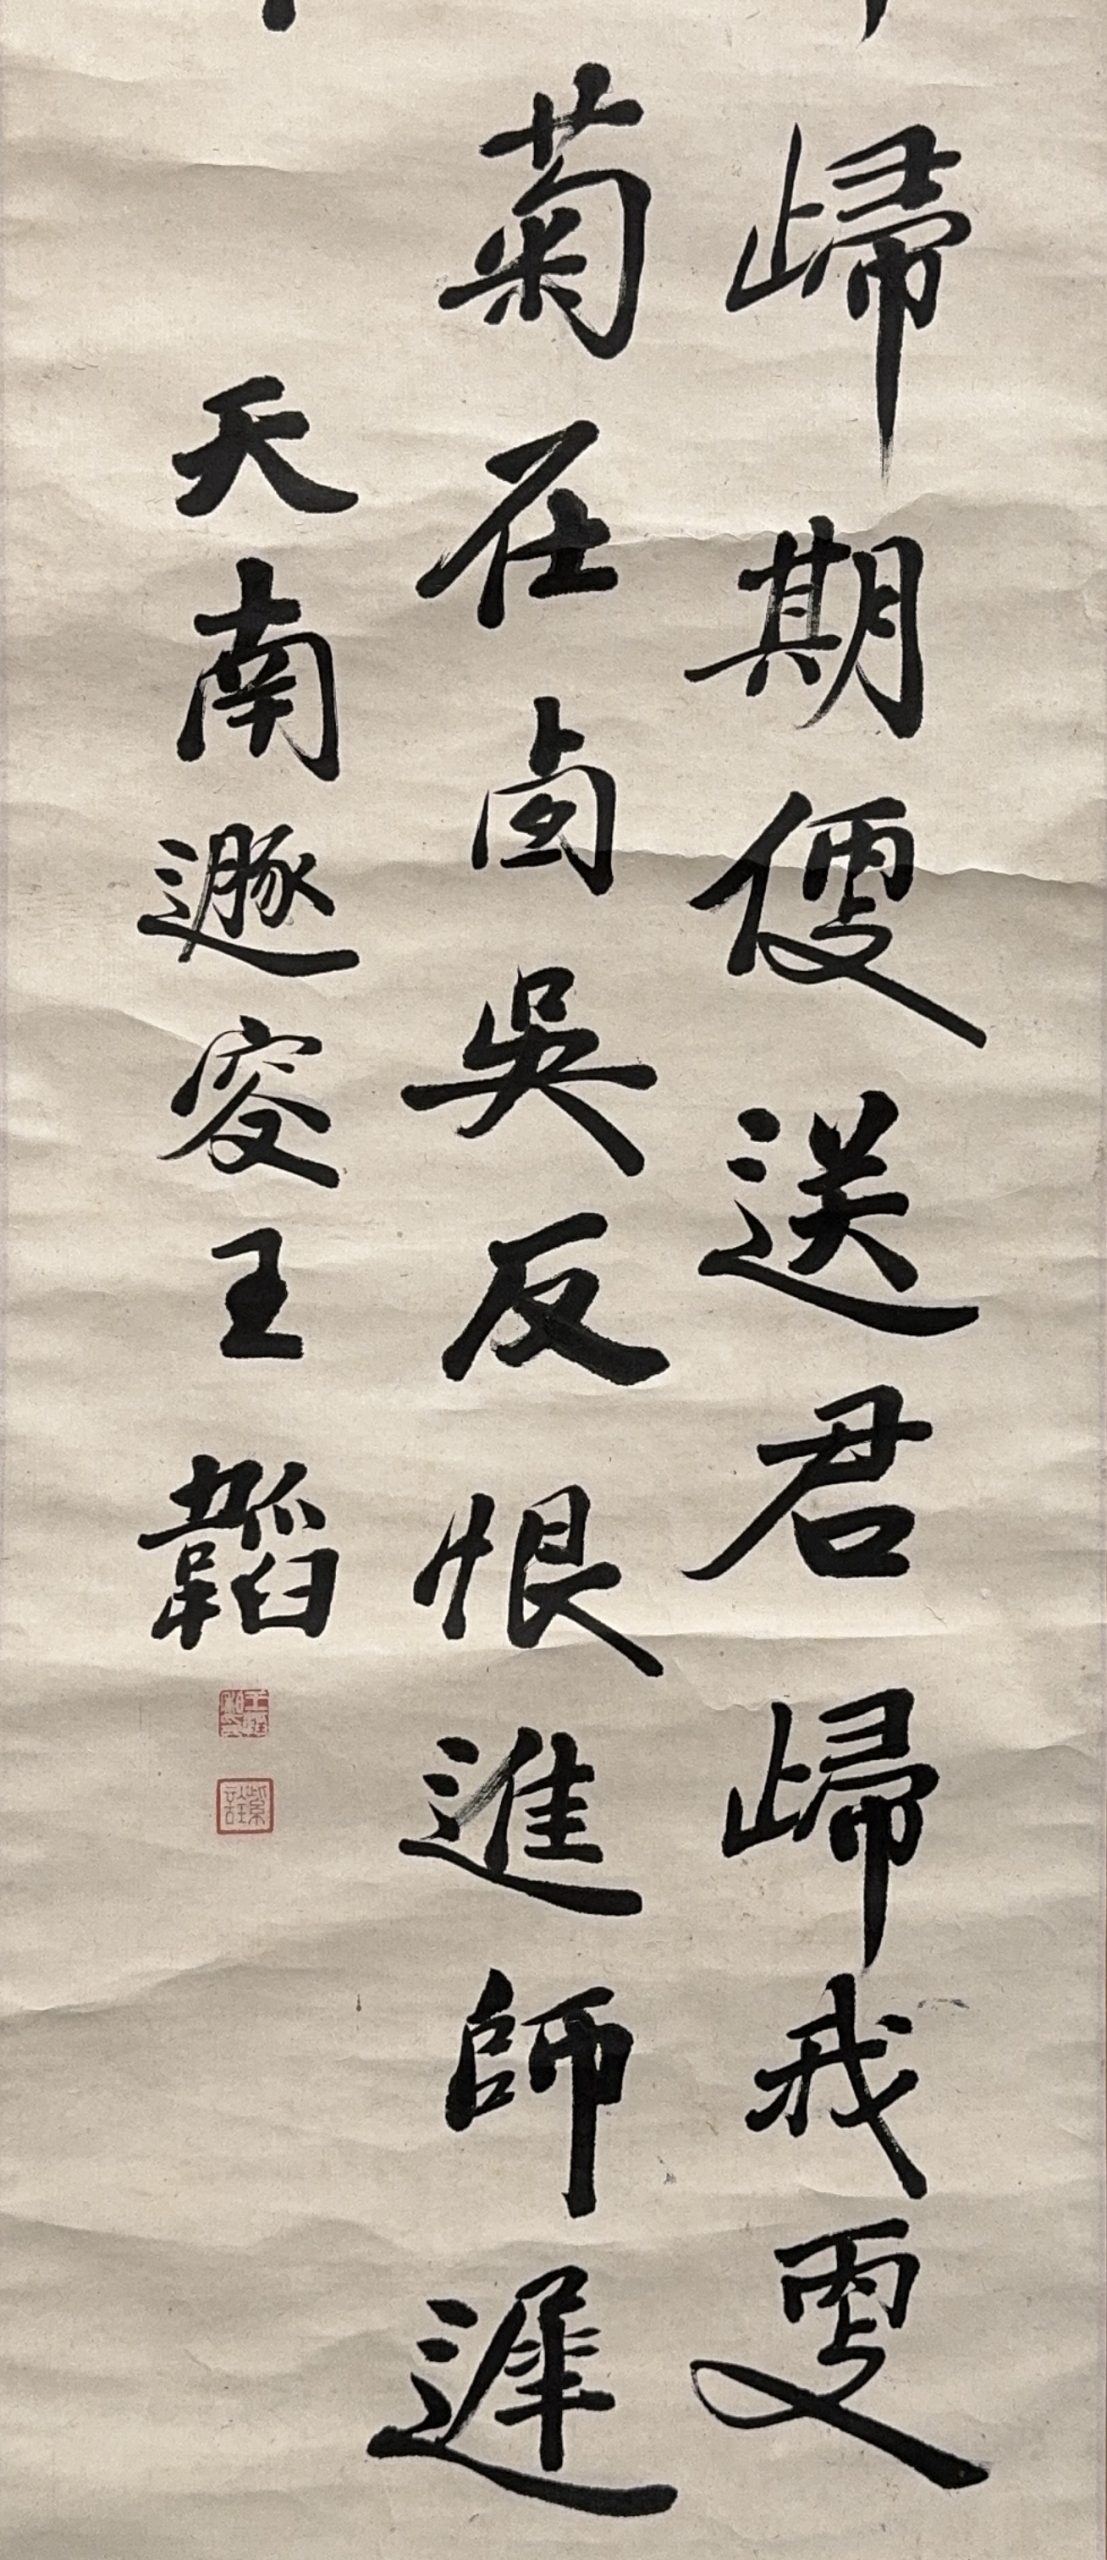 歸期便送君歸我更
菊在卣吳反恨進師遲
天南遯叟王韜
紫詮